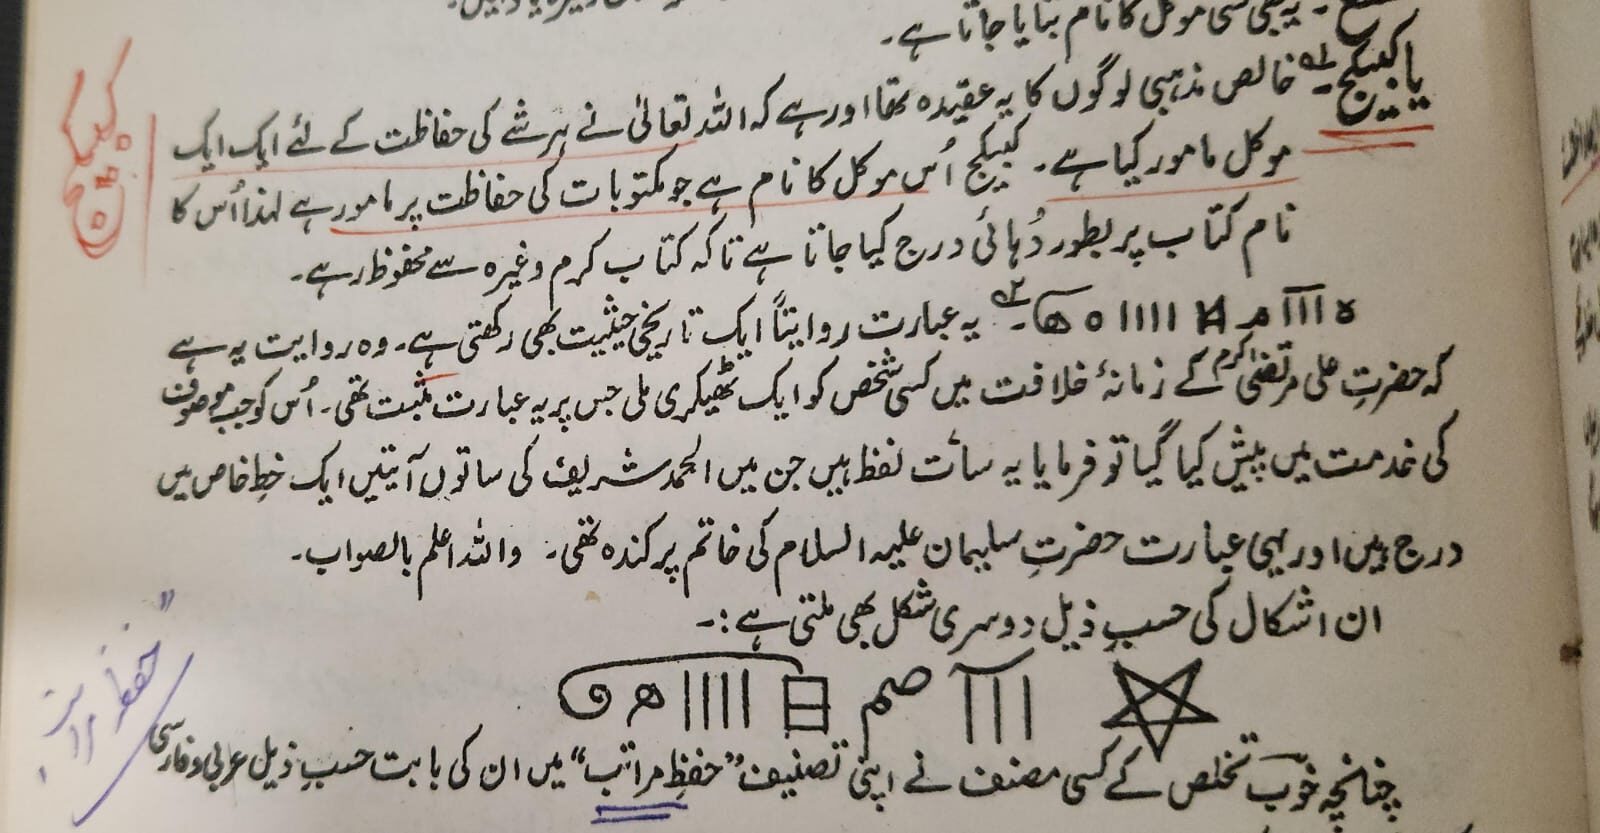 یہ بھی کسی موکل کا نام بتایا جاتا ہے۔
یا کبیکج۔ خالص مذہبی لوگوں کا یہ عقیدہ تھا اور ہے کہ اللہ تعالیٰ نے ہر شے کی حفاظت کے لئے ایک ایک
موکل مامور کیا ہے۔ کبیکج اُس موکل کا نام ہے جو مکتوبات کی حفاظت پر مامور ہے لہذا اُس کا
نام کتاب پر بطور دُہائی درج کیا جاتا ہے تاکہ کتاب کرم وغیرہ سے محفوظ رہے۔
یہ عبارت روایتاً ایک تاریخی حیثیت بھی رکھتی ہے۔ وہ روایت یہ ہے
کہ حضرتِ علی مرتضیٰ کرم کے زمانۂ خلافت میں کسی شخص کو ایک ٹھیکری ملی جس پر یہ عبارت مثبت تھی۔ اُس کو جب موصوف
کی خدمت میں پیش کیا گیا تو فرمایا یہ سات لفظ ہیں جن میں الحمد شریف کی ساتوں آیتیں ایک خطِ خاص میں
درج ہیں اور یہی عبارت حضرتِ سلیمان علیہ السلام کی خاتم پر کندہ تھی۔ واللہ اعلم بالصواب۔
ان اشکال کی حسبِ ذیل دوسری شکل بھی ملتی ہے:۔
چنانچہ خوب تخلص کے کسی مصنف نے اپنی تصنیف "حفظِ مراتب" میں ان کی بابت حسبِ ذیل عربی و فارسی
کبیکج
"حفظ مراتب"